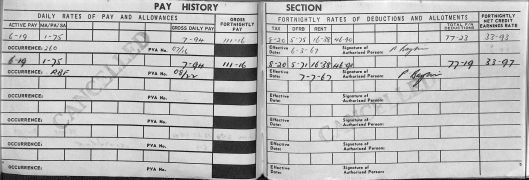 PAY HISTORY SECTION
DAILY RATES OF PAY AND ALLOWANCES
ACTIVE PAY MA/PA/SA GROSS DAILY PAY GROSS FORTNIGHTLY PAY
6-19 1-75 7-94 111-16
OCCURRENCE: 260 PVA No. 07/6
6-19 1-75 7-94 111-16
OCCURRENCE: RBF PVA No. 08/22
CANCELLED
OCCURRENCE: PVA No.
OCCURRENCE: PVA No.
OCCURRENCE: PVA No.
OCCURRENCE: PVA No.
FORTNIGHTLY RATES OF DEDUCTIONS AND ALLOTMENTS
TAX DFRB RENT TOTAL F/N DEDUCTIONS FORTNIGHTLY NET CREDIT EARNINGS RATE
8-20 5-75 16-38 46-90 77-23 33-93
Effective Date: 6-3-67 Signature of Authorised Person:
8-20 5-71 16-38 46-90 77-19 33-97
Effective Date: 7-7-67 Signature of Authorised Person:
CANCELLED
Effective Date: Signature of Authorised Person:
Effective Date: Signature of Authorised Person:
Effective Date: Signature of Authorised Person:
Effective Date: Signature of Authorised Person: